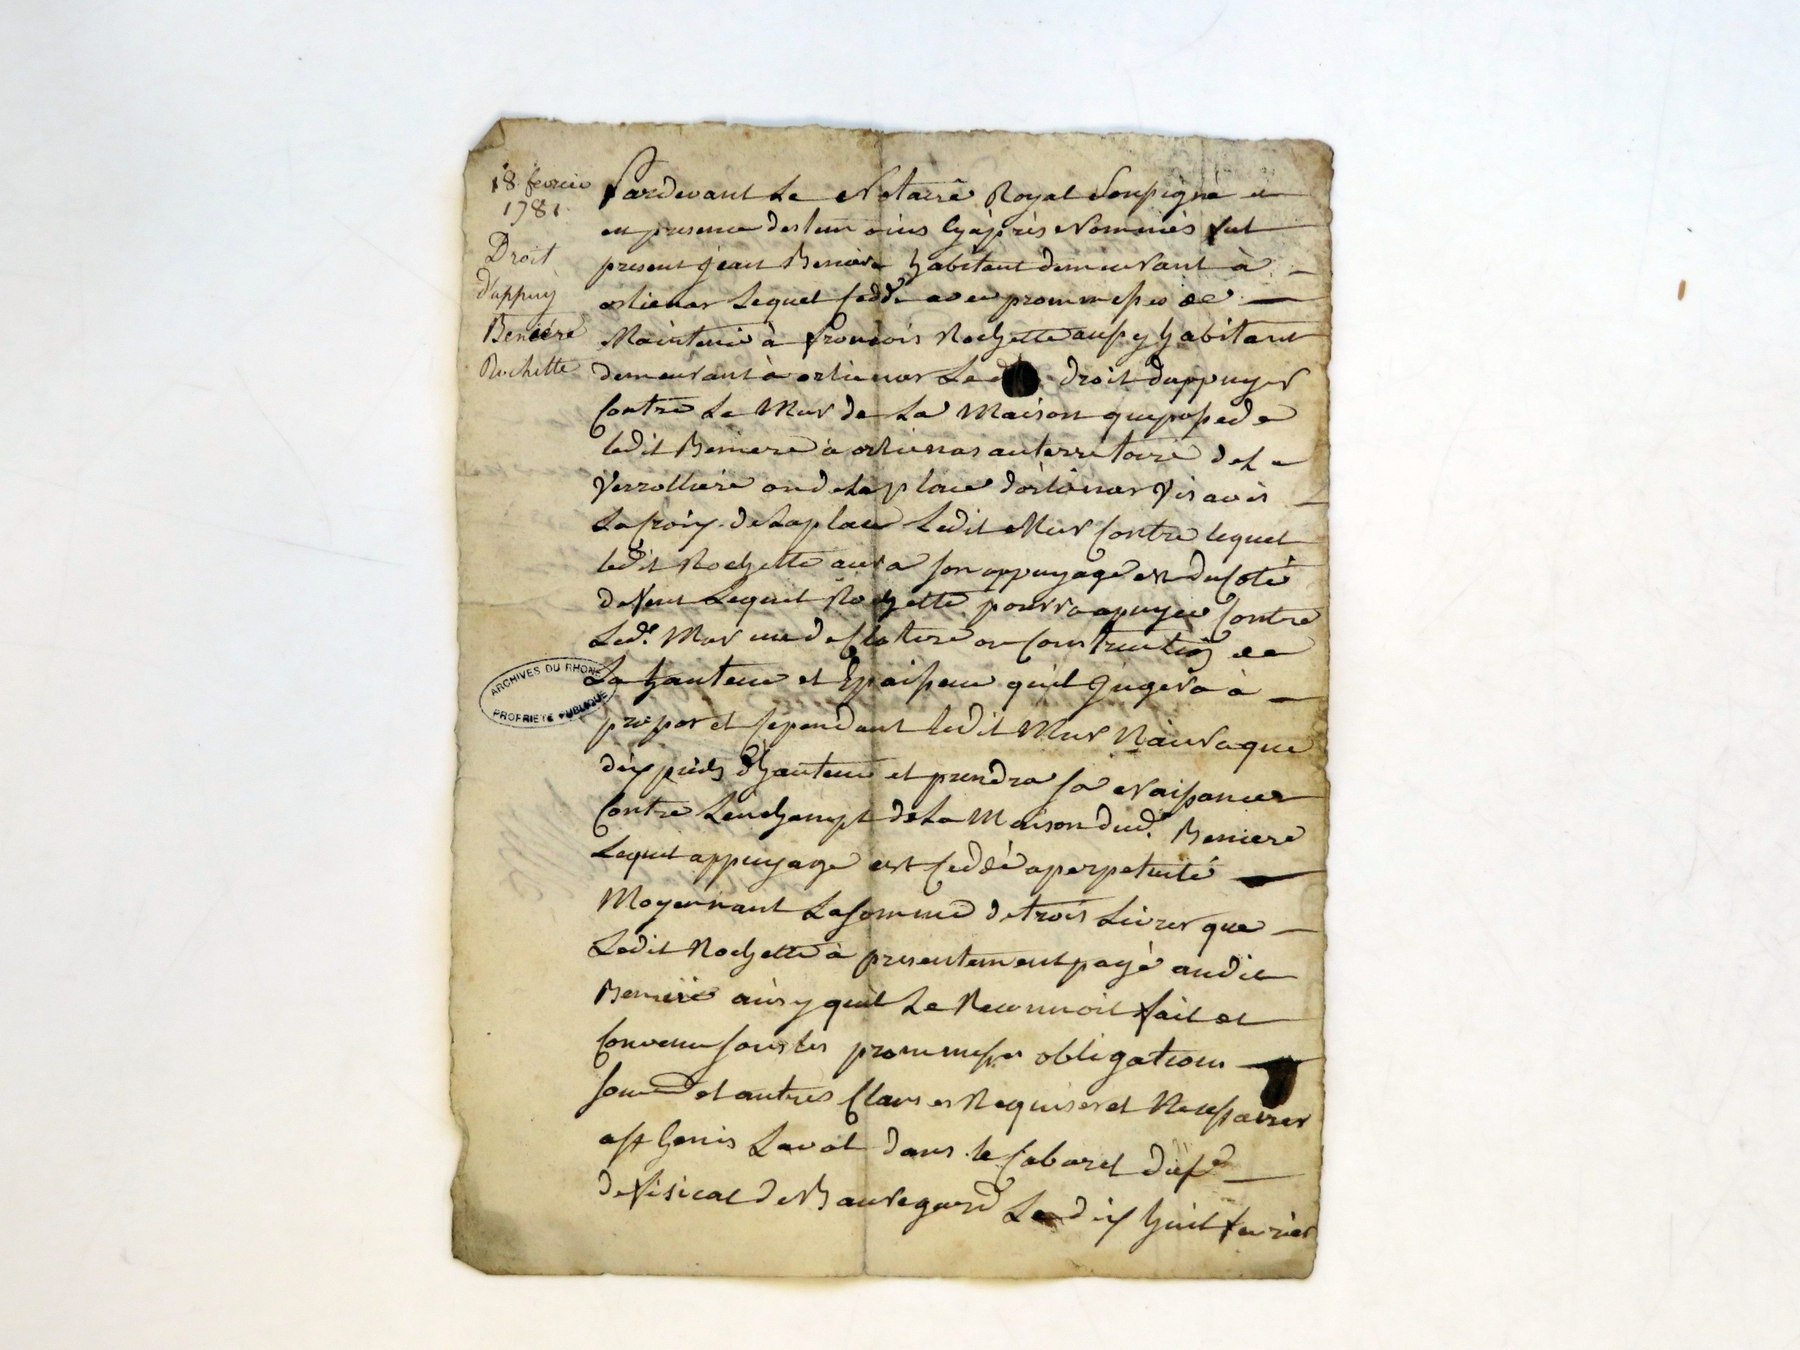 18 fevrier
1781
Droit
d'appuy
Beniere
Rochette
Pardevant Le Notaire Royal Soussigné et
en presence des temoins cy après Nommés fut
present jean Beniere habitant demeurant à
orlienas Lequel cedde avec prommesses de
Maintenir à francois Rochette aussy habitant
demeurant à orlienas Le droit dappuyer
Contre Le Mur de La Maison que possede
ledit Beniere à orlienas au territoire de La
Verrolliere ou de La place dorlienas vis avis
La croix de La place Ledit Mur Contre lequel
ledit Rochette aura son appuyage est du Coté
de Vent Lequel Rochette pourra apuyer Contre
Led.t Mur une de cloture ou Construction de
La hauteur et Epaisseur quil jugera à
propos et cependant ledit Mur Naura que
dix pieds dhauteur et prendra sa Naissance
Contre Lenchampt de La Maison dud.t Beniere
Lequel appuyage est ceddé a perpetuité
Moyennant La somme de trois Livres que
Ledit Rochette à presentement payé audit
Beniere ainsy quil Le Reconnoit fait et
Convenu sous les prommesses obligations
soum.ons et autres Clauses Requises et Necessaires
a S.t Genis Laval dans le Cabaret du s.r
de Bauregard Le dix huit fevrier
ARCHIVES DU RHONE
PROPRIETE PUBLIQUE